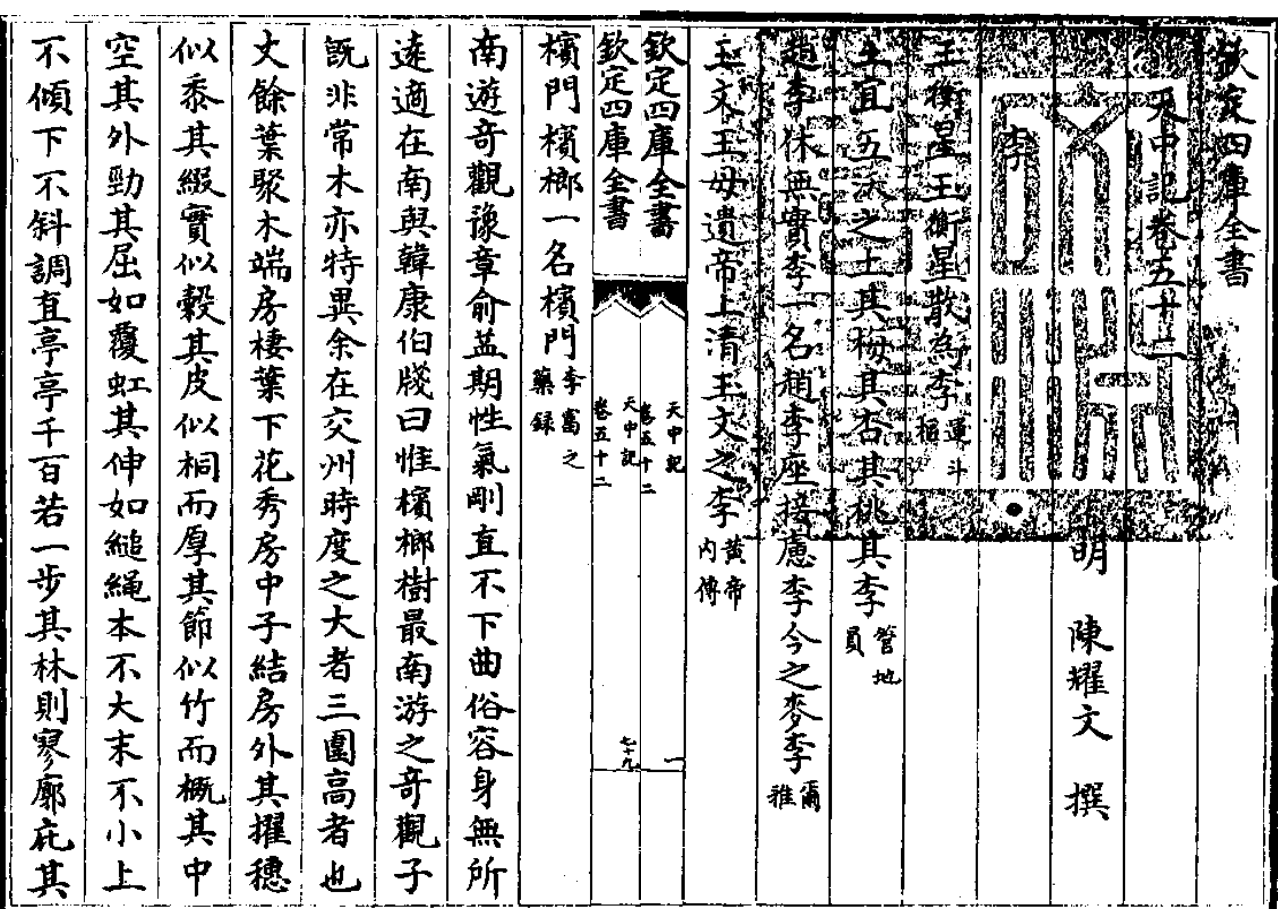 欽定四庫全書
天中記卷五十二
明 陳耀文 撰
李
玉衡星玉衡星散為李運斗樞
土宜五沃之土其梅其杏其桃其李管地員
趙李休無實李一名趙李座接慮李今之麥李爾雅
玉文王母遺帝上清玉文之李黄帝内傳
欽定四庫全書 天中記卷五十二 一
欽定四庫全書 天中記卷五十二 七十九
檳門檳榔一名檳門李當之藥録
南遊竒觀豫章俞益期性氣剛直不下曲俗容身無所
逺適在南與韓康伯牋曰惟檳榔樹最南游之奇觀子
既非常木亦特異余在交州時度之大者三圍高者也
丈餘葉聚木端房棲葉下花秀房中子結房外其擢穗
似黍其綴實似穀其皮似桐而厚其節似竹而概其中
空其外勁其屈如覆虹其伸如縋繩本不大末不小上
不傾下不斜調直亭亭千百若一步其林則寥廓庇其